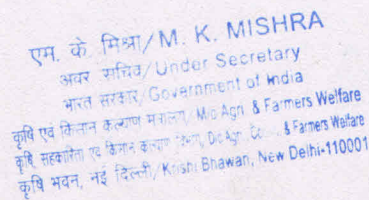 एम. के. मिश्रा/M. K. MISHRA
अवर सचिव/Under Secretary
भारत सरकार/Government of India
कृषि एवं किसान कल्याण मंत्रालय/M/o Agri. & Farmers Welfare
कृषि, सहकारिता एवं किसान कल्याण विभाग, D/o Agri. & Farmers Welfare
कृषि भवन, नई दिल्ली/Krishi Bhawan, New Delhi-110001